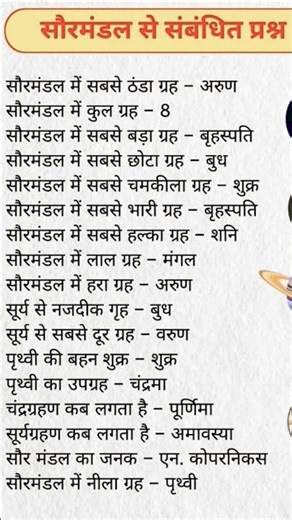 सौरमंडल से संबंधित प्रश्न
सौरमंडल में सबसे ठंडा ग्रह – अरुण
सौरमंडल में कुल ग्रह – 8
सौरमंडल में सबसे बड़ा ग्रह – बृहस्पति
सौरमंडल में सबसे छोटा ग्रह – बुध
सौरमंडल में सबसे चमकीला ग्रह – शुक्र
सौरमंडल में सबसे भारी ग्रह – बृहस्पति
सौरमंडल में सबसे हल्का ग्रह – शनि
सौरमंडल में लाल ग्रह – मंगल
सौरमंडल में हरा ग्रह – अरुण
सूर्य से नजदीक गृह – बुध
सूर्य से सबसे दूर ग्रह – वरुण
पृथ्वी की बहन शुक्र – शुक्र
पृथ्वी का उपग्रह – चंद्रमा
चंद्रग्रहण कब लगता है – पूर्णिमा
सूर्यग्रहण कब लगता है – अमावस्या
सौर मंडल का जनक – एन. कोपरनिकस
सौरमंडल में नीला ग्रह – पृथ्वी